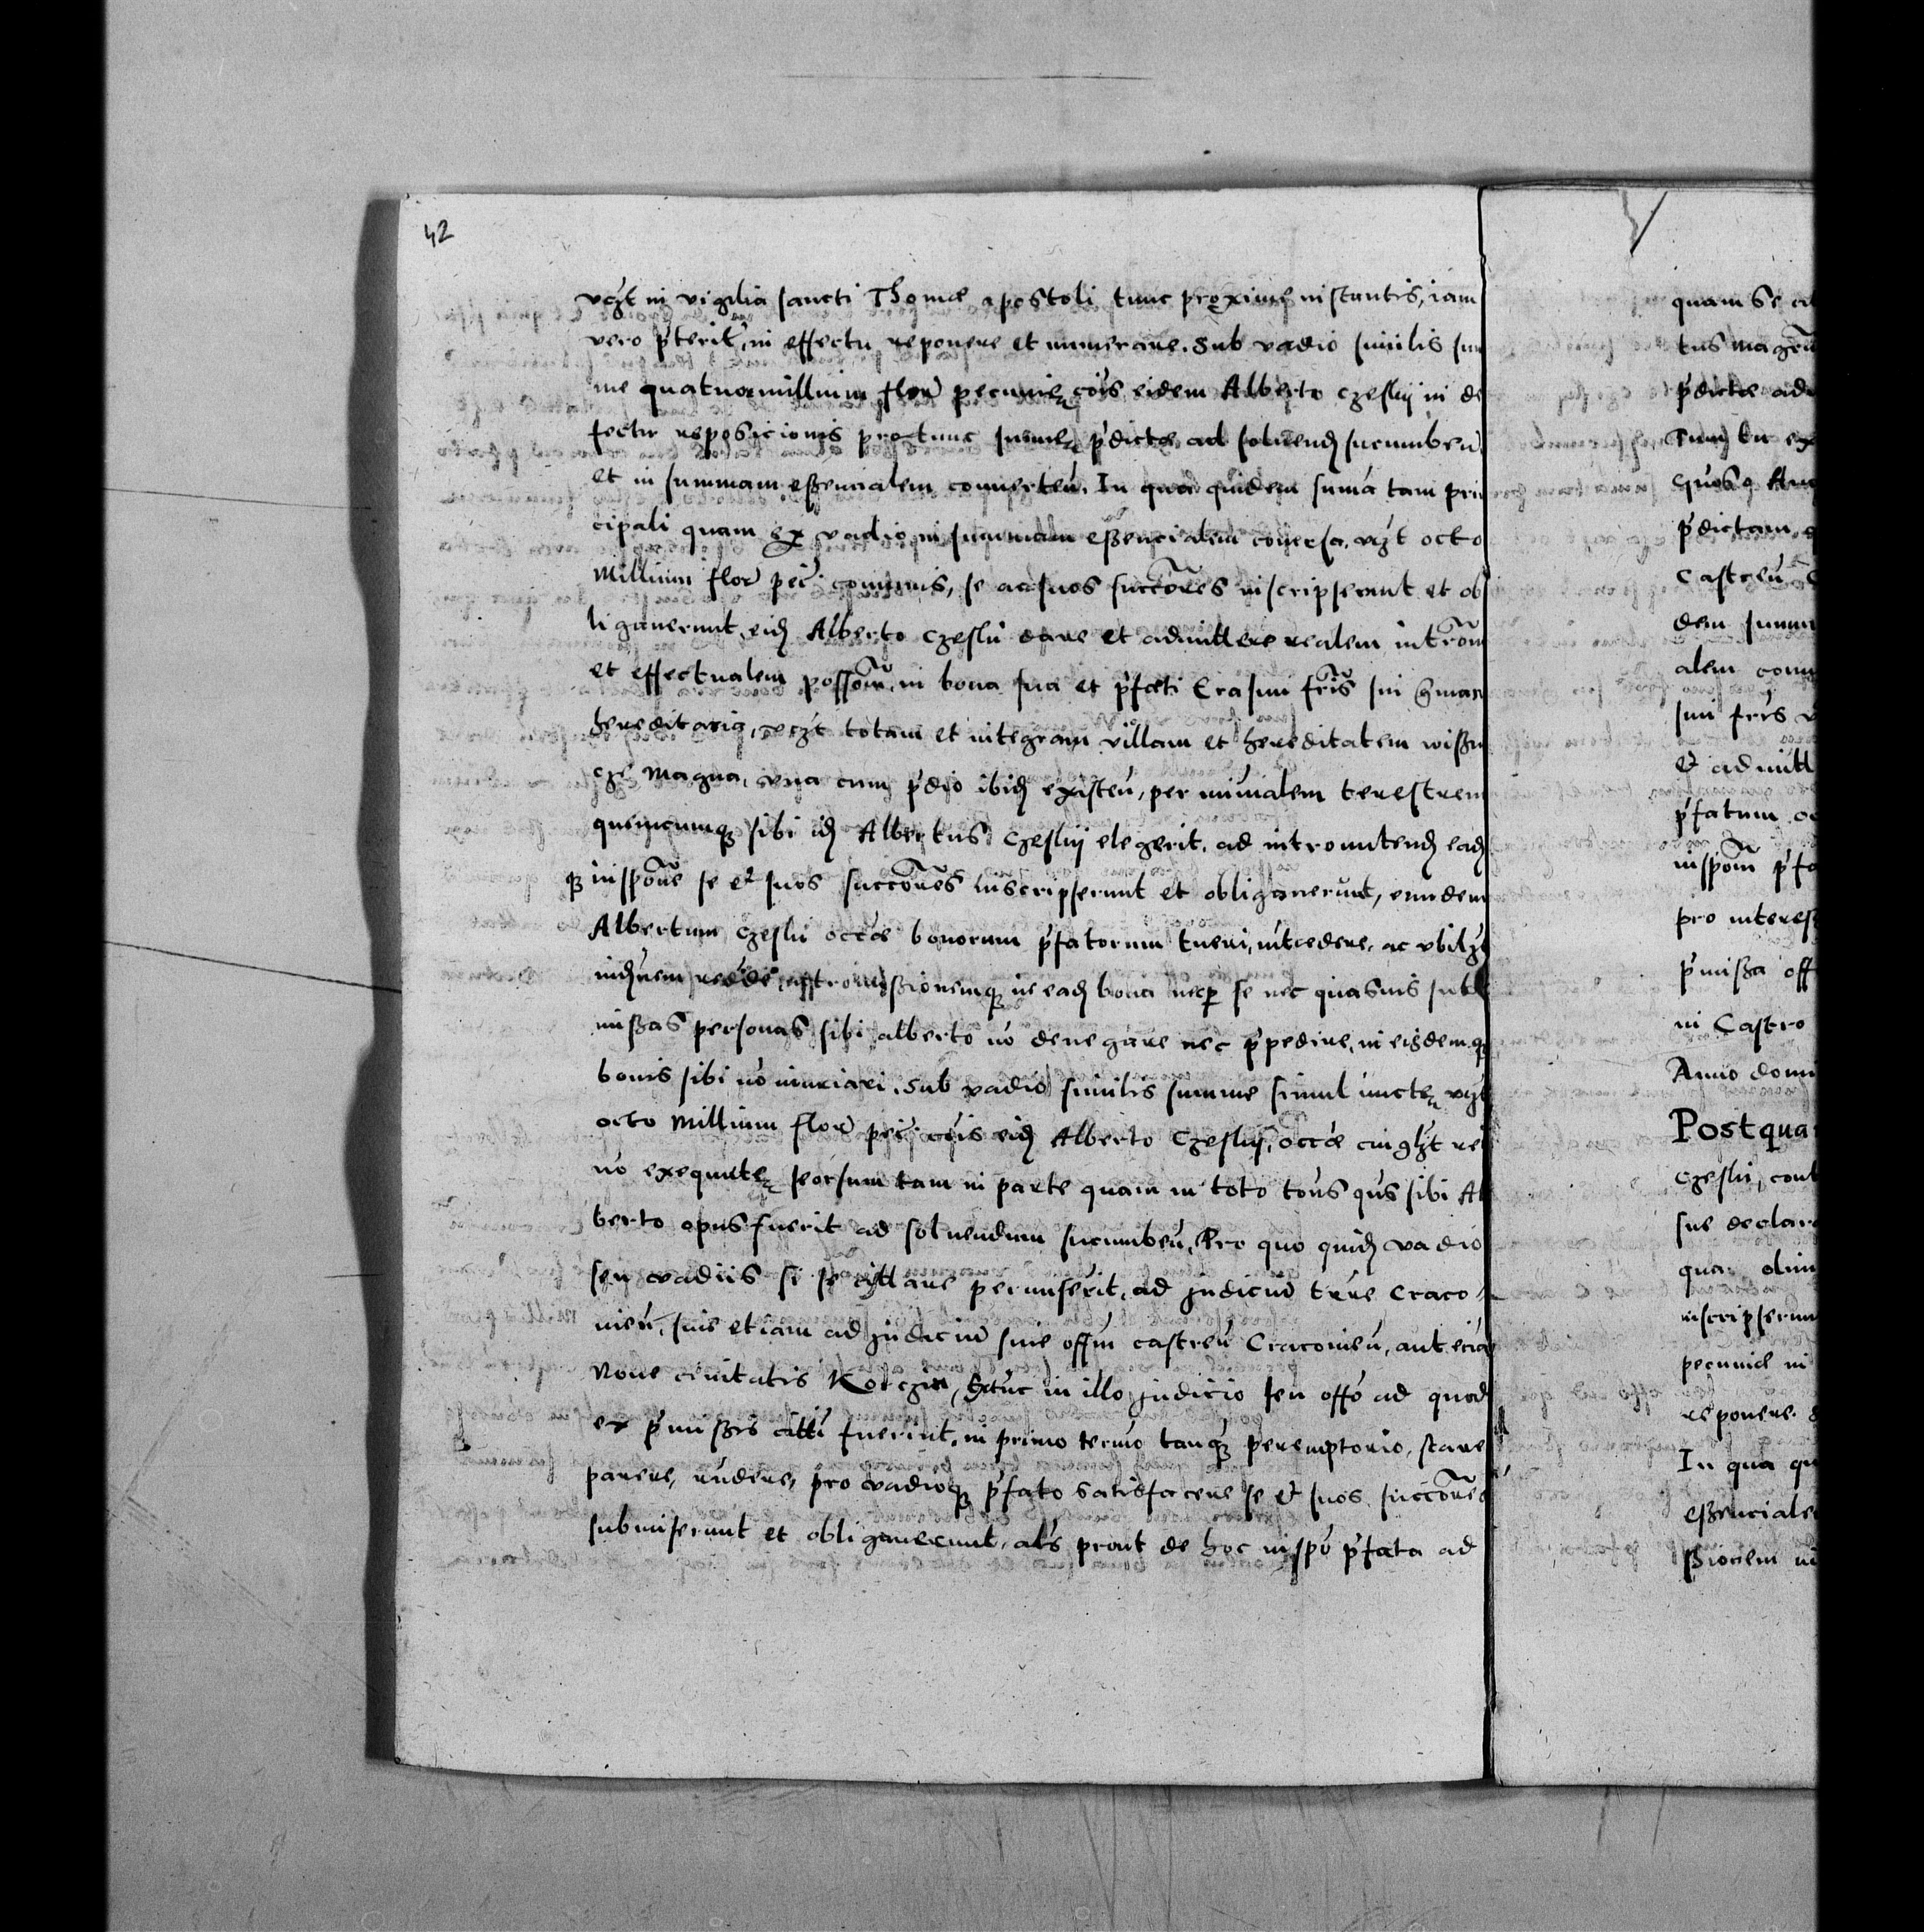 42
vczt in vigilia sancti Thome apostoli tunc proxime instantis, iam
vero pterit, in effectu reponere et numerare. Sub vadio similis sum
me quatuormillium flor pecunie cois eidem Alberto Czeslij in de
fectu reposicionis protunc summe pdicte ad solvend sucumben
et in summam essencialem converten. In qua quidem suma tam prin
cipali quam ex vadio in summam essencialem conversa, vczt octo
Millium flor pec communis, se ac suos succores inscripserunt et ob
ligaverunt, eid Alberto Czeslii dare et admittere realem introm
et effectualem possom, in bona sua et pfati Erasmi fris sui german
hereditaria, vczt totam et integram villam et hereditatem wissni
cze Magna, vna cum pdio ibid existen, per ministerialem terestrem
quemcumq sibi id Albertus Czeslij elegerit, ad intromittend ead
q inspone se et suos succores Inscripserunt et obligaverunt, eundem
Albertum Czeslii occoe bonorum pfatorum tueri, intcedere, ac vbilzt
indemnem reddere intromissionemq in ead bona nec p se nec quasvis subl
missas personas sibi alberto no denegare nec ppedire, in eisdemq
bonis sibi no iniuriari. Sub vadio similis summe simul iuncte, vczt
octo Millium flor pec cois eid Alberto Czeslij, occoe cuiuslzt rei
no exequute, seorsum tam in parte quam in toto tocies quocies sibi Al
berto opus fuerit ad solvendum sucumben. Pro quo quid vadio
seu vadiis si se cittare permiserit, ad judiciu trre Craco
vien, sive etiam ad judiciu sive offm castren Cracovien, aut ecia
Nove civitatis Korczin, extunc in illo judicio seu offo ad quod
ex pmissis citti fuerint, in primo termo tanq peremptorio, stare
parere, rndere, pro vadioq pfato satisfacere se et suos succores
submiserunt et obligaverunt, als prout de hoc inspo pfata ad
quam se
tus magren
pdicte
Tunq tu
Quosq
pdictam
Castren
dem summ
alem
sui fris
Et admitt
pfatum
inspom
pro interess
pmissa off
in Castro
Anno domi
Postqua
Czeslii, cont
sue declar
qua olim
inscripserun
pecunie in
reponere
In qua qu
essenciale
ssionem in